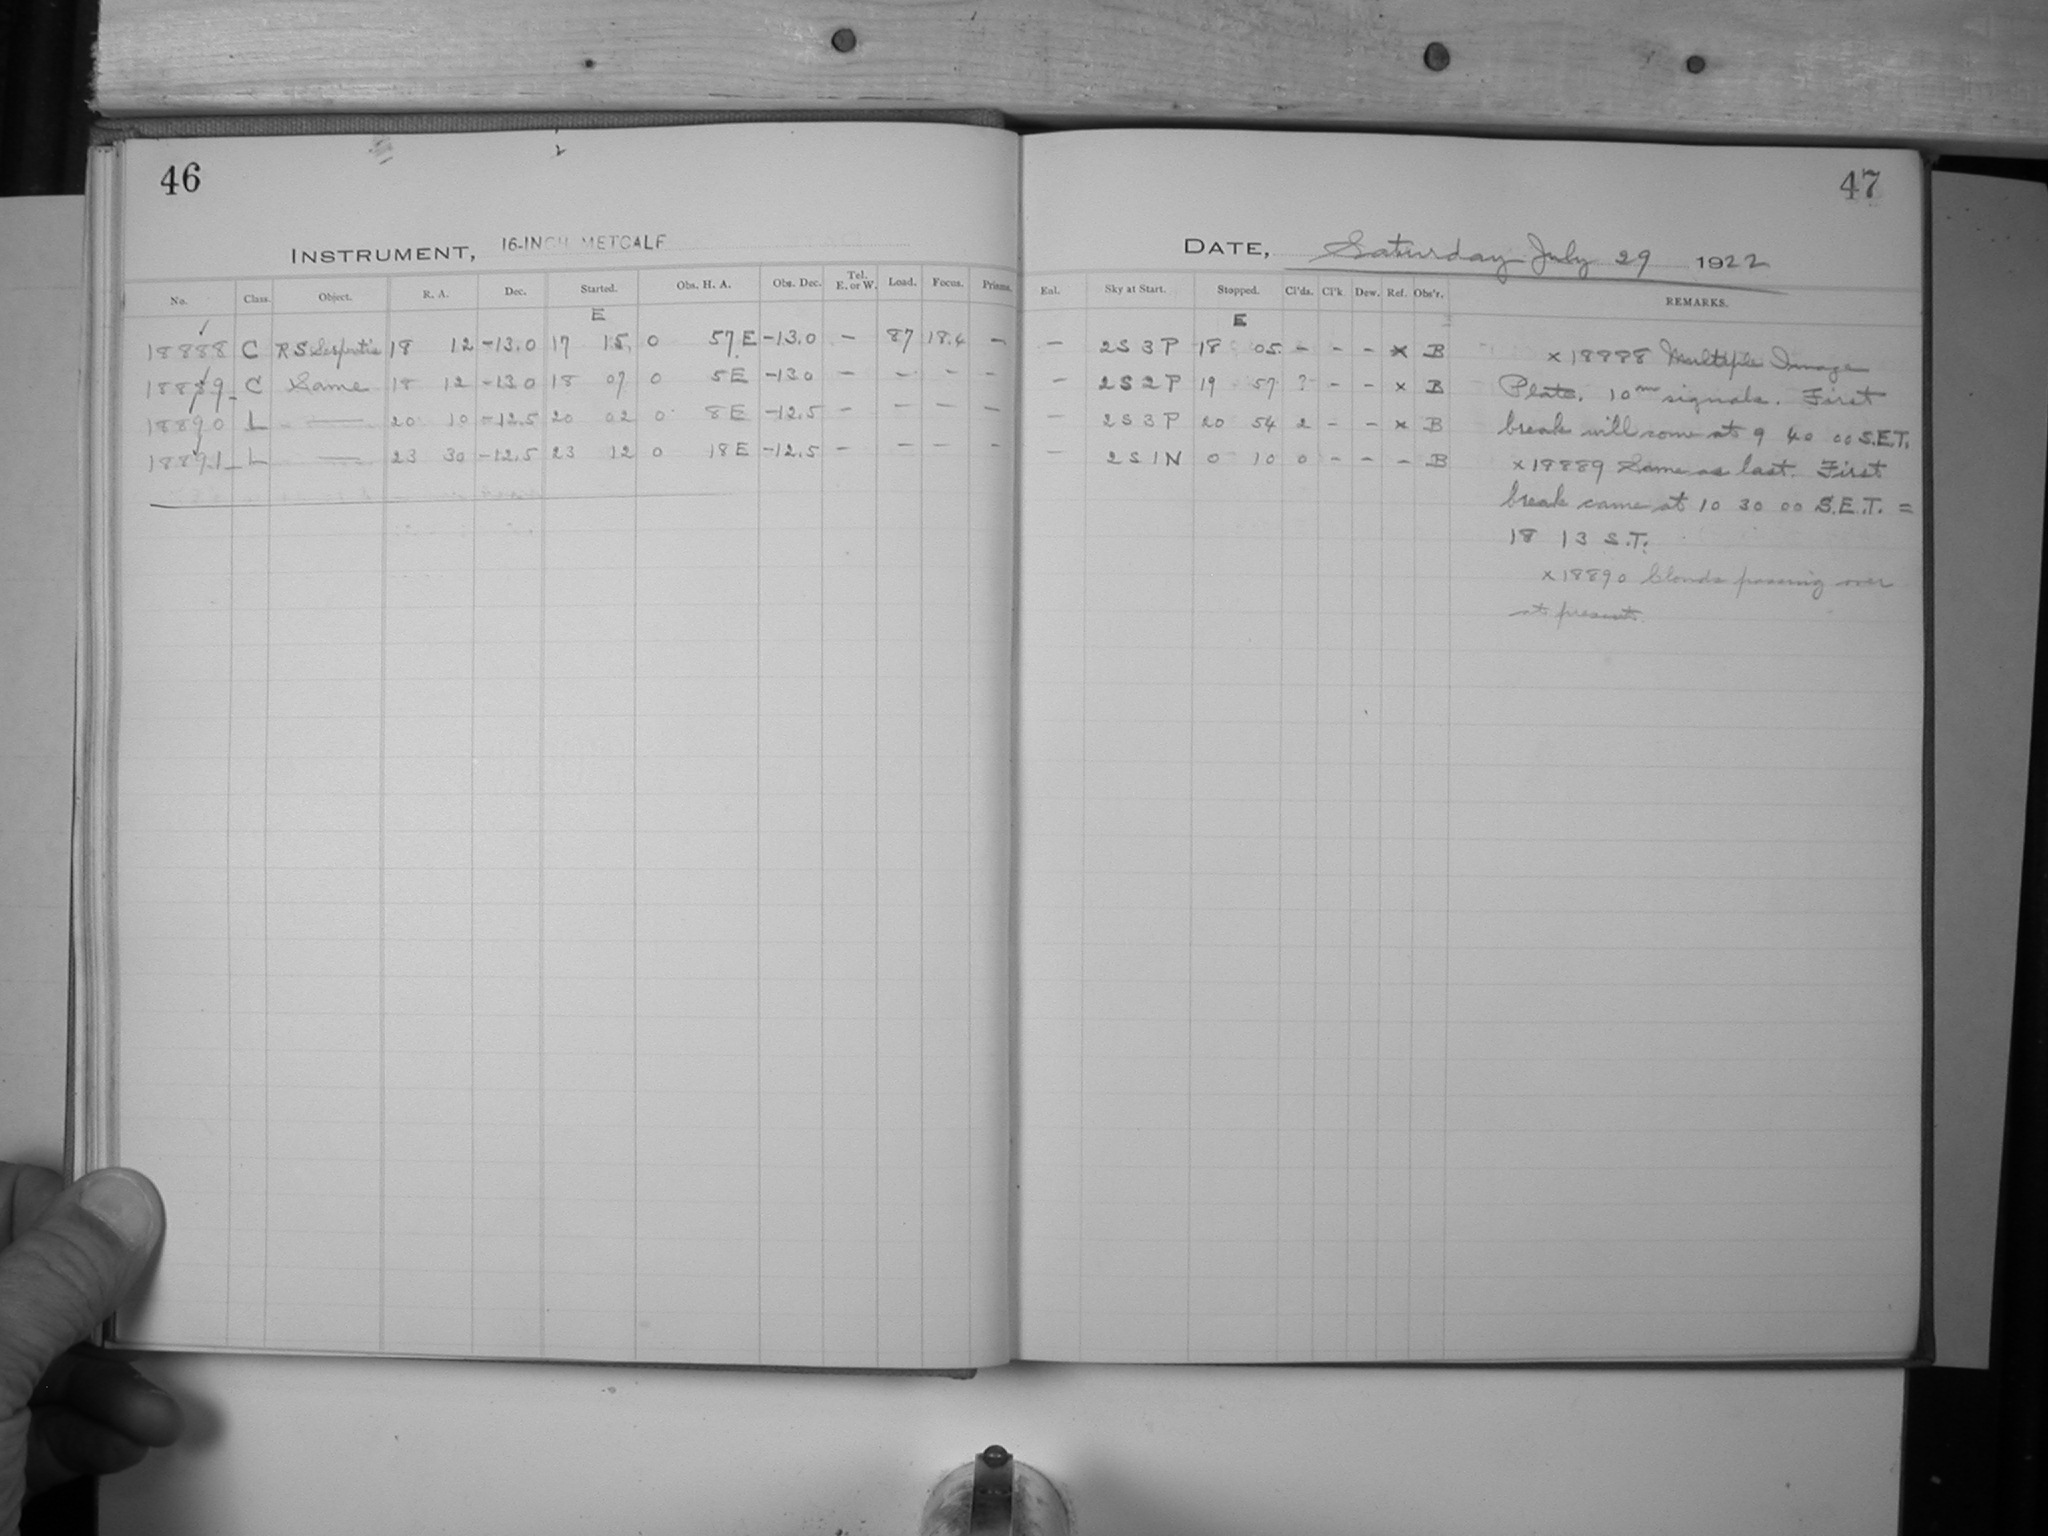 46
INSTRUMENT, 16-INCH METCALF
No. Class. Object. R. A. Dec. Started. Obs. H. A. Obs. Dec. Tel. E. or W. Load. Focus. Prisms.
E
18888 C RS Serpentis 18 12 -13.0 17 15 0 57 E -13.0 - 87 18.4 -
18889 C Same 18 12 -13.0 18 07 0 5 E -13.0 - - - -
18890 L — 20 10 -12.5 20 02 0 8 E -12.5 - - - -
18891 L — 23 30 -12.5 23 12 0 18 E -12.5 - - - -
47
DATE, Saturday July 29 1922
Enl. Sky at Start. Stopped. Cl'ds. Cl'k. Dew. Ref. Obs'r. REMARKS.
E
- 2S 3P 18 05 - - - x B
- 2S 2P 19 57 ? - - x B
- 2S 3P 20 54 2 - - x B
- 2S 1N 0 10 0 - - - B
x 18888 Multiple Image
Plate. 10m signals. First
break will come at 9 40 00 S.E.T.
x 18889 Same as last. First
break came at 10 30 00 S.E.T. =
18 13 S.T.
x 18890 Clouds passing over
at present.